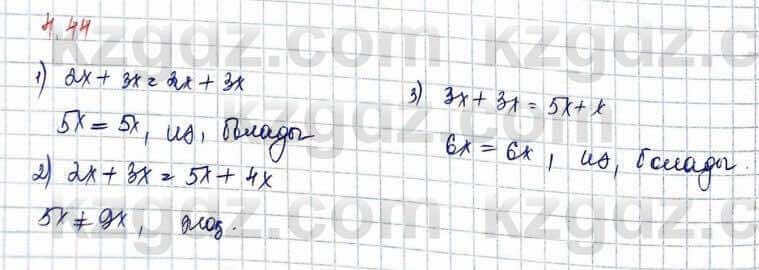 4.44
1) 2x + 3x = 2x + 3x
5x = 5x, иә, болады
2) 2x + 3x = 5x + 4x
5x ≠ 9x, жоқ.
3) 3x + 3x = 5x + x
6x = 6x, иә, болады.
kzgdz.com kzgdz.com
kzgdz.com kzgdz.com